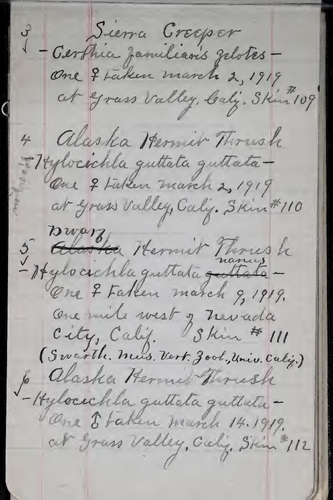 3 Sierra Creeper
- Certhia familiaris zelotes -
One ♀ taken March 2, 1919
at Grass Valley, Calif. Skin #109
4 Alaska Hermit Thrush
- Hylocichla guttata guttata -
One ♀ taken March 2, 1919
at Grass Valley, Calif. Skin #110
Dwarf
5 Alaska Hermit Thrush
nanus
- Hylocichla guttata guttata -
One ♀ taken March 9, 1919.
One mile west of Nevada
City, Calif. Skin #111
(Swarth. Mus. Vert. Zool., Univ. Calif.)
6 Alaska Hermit Thrush
- Hylocichla guttata guttata -
One ♂ taken March 14, 1919.
at Grass Valley, Calif. Skin #112